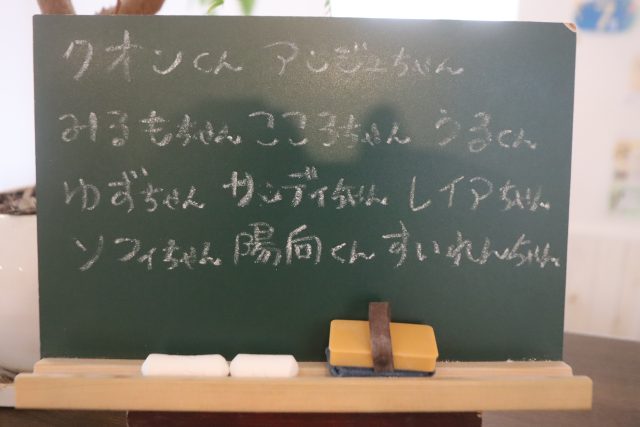 クオンくん アンジュちゃん
みるもちゃん こころちゃん うるくん
ゆずちゃん サンディちゃん レイアちゃん
ソフィちゃん 陽向くん すいれんちゃん